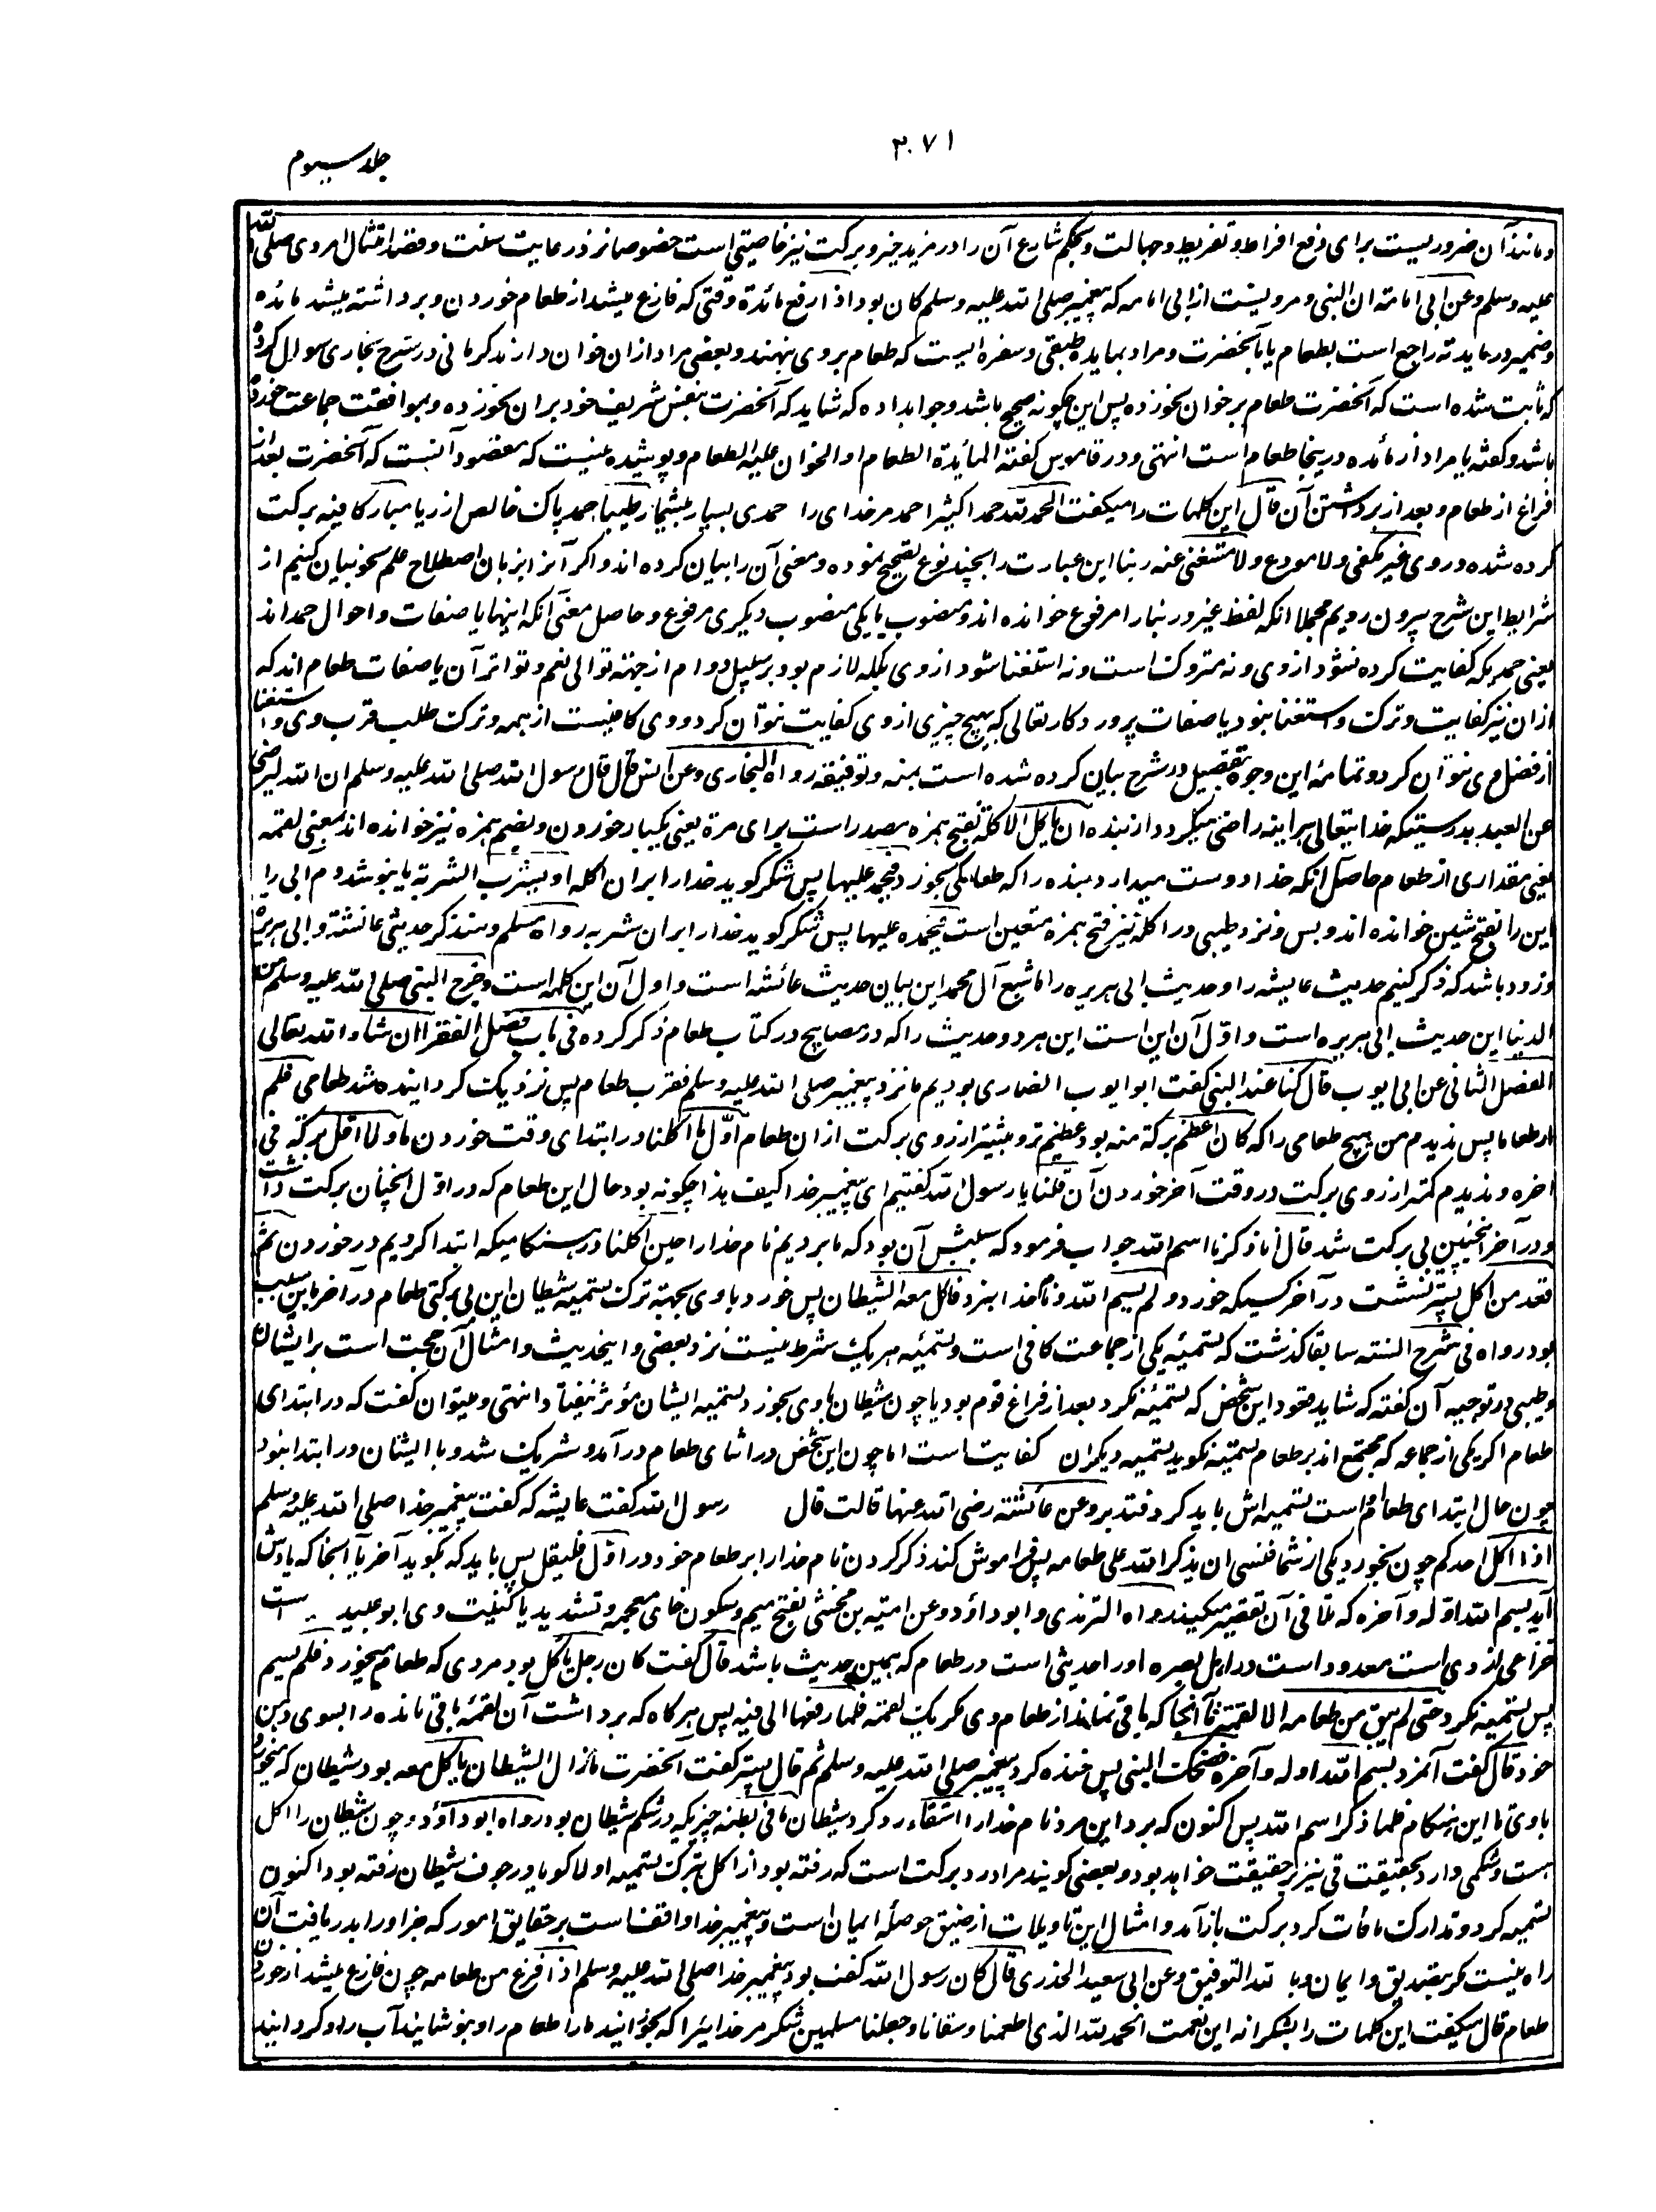 ۳۰۷۱
جلد سیوم
و مانند آن ضروریست برای دفع افراط و تفریط و جهالت و بحکم شارع آن را در مزید خیر و برکت نیز خاصیتی است خصوصا نزد رعایت سنت و قصد امتثال امر وی صلی الله
علیه وسلم وعن ابی امامة ان النبی و مرویست از ابی امامه که پیغمبر صلی الله علیه وسلم کان بود اذا رفع مائدة وقتی که فارغ میشد از طعام خوردن و برداشته میشد مائده
و ضمیر در مایدته راجع است بطعام یا بآنحضرت و مراد بمایده طبقی و سفره ایست که طعام بروی بنهند و بعضی مراد ازان خوان دارند کرمانی در شرح بخاری سوال کرده
که ثابت شده است که آنحضرت طعام بر خوان نخورده پس این چگونه صحیح باشد و جواب داده که شاید که آنحضرت بنفس شریف خود بران نخورده و بموافقت جماعت خورده
باشد و گفته یا مراد از مائده درینجا طعام است انتهی و در قاموس گفته المائدة الطعام او الخوان علیه الطعام و پوشیده نیست که مقصود آنست که آنحضرت بعد از
فراغ از طعام و بعد از برداشتن آن قال این کلمات را میگفت الحمد لله حمدا کثیرا حمد مر خدای را حمدی بسیار بیشمار طیبا حمد پاک خالص از ریا مبارکا فیه برکت
کرده شده در وی غیر مکفی ولا مودع ولا مستغنی عنه ربنا این عبارت را بچند نوع تصحیح نموده و معنی آن را بیان کرده اند و اگر آنرا بزبان اصطلاح علم نحو بیان کنیم از
شرایط این شرح بیرون رویم مجملا انکه لفظ غیر و ربنا را مرفوع خوانده اند و منصوب یا یکی منصوب دیگری مرفوع و حاصل معنی آنکه اینها یا صفات و احوال حمد اند
یعنی حمدیکه کفایت کرده نشود از وی و نه متروک است و نه استغنا شود از وی بلکه لازم بود بر سبیل دوام از جهته توالی نعم و تواتر آن یا صفات طعام اند که
ازان نیز کفایت و ترک و استغنا نبود یا صفات پروردگار تعالی که هیچ چیزی از وی کفایت نتوان کرد و وی کافیست از همه و ترک طلب قرب وی و استغنا
از فضل وی نتوان کرد و تمامه این وجوه بتفصیل در شرح بیان کرده شده است بمنه و توفیقه رواه البخاری وعن انس قال قال رسول الله صلی الله علیه وسلم ان الله لیرضی
عن العبد بدرستیکه خدایتعالی هراینه راضی میگردد از بنده ان یاکل الاکلة بفتح همزه مصدر است برای مرة یعنی یکبار خوردن و بضم همزه نیز خوانده اند بمعنی لقمه
یعنی مقداری از طعام حاصل انکه خدا دوست میدارد بنده را که طعامکی بخورد فیحمد علیها پس شکر گوید خدا را بران اکله او یشرب الشربة یا بنوشد دم آبی را
این را بفتح شین خوانده اند و بس و نزد طیبی در اکله نیز فتح همزه متعین است فیحمده علیها پس شکر گوید خدا را بران شربه رواه مسلم و سنذکر حدیثی عائشة و ابی هریرة
و زود باشد که ذکر کنیم حدیث عایشه را و حدیث ابی هریره را ما شبع آل محمد این بیان حدیث عائشه است و اول آن این کلمه است و خرج النبی صلی الله علیه وسلم من
الدنیا این حدیث ابی هریره است و اول آن این است این هر دو حدیث را که در مصابیح در کتاب طعام ذکر کرده فی باب فضل الفقرا ان شاء الله تعالی
الفصل الثانی عن ابی ایوب قال کنا عند النبی گفت ابو ایوب انصاری بودیم ما نزد پیغمبر صلی الله علیه وسلم فقرب طعام پس نزدیک گردانیده شد طعامی فلم
ار طعاما پس ندیدم من هیچ طعامی را که کان اعظم برکة منه بود عظیم تر و بیشتر از روی برکت ازان طعام اول ما اکلنا در ابتدای وقت خوردن ما ولا اقل برکة فی
اخره و ندیدم کمتر از روی برکت در وقت آخر خوردن آن قلنا یا رسول الله گفتیم ای پیغمبر خدا کیف هذا چگونه بود حال این طعام که در اول انچنان برکت داشت
و در آخر اینچنین بی برکت شد قال انا ذکرنا اسم الله جواب فرمود که سببش آن بود که ما بردیم نام خدا را حین اکلنا در هنگامیکه ابتدا کردیم در خوردن ثم
قعد من اکل پستر نشست در آخر کسیکه خورد و لم یسم الله و نام خدا نبرد فاکل معه الشیطان پس خورد با وی بجهة ترک تسمیه شیطان این بی برکتی طعام در آخر باین سبب
بود رواه فی شرح السنته سابقا گذشت که تسمیه یکی از جماعت کافی است و تسمیه هر یک شرط نیست نزد بعضی و اینحدیث و امثال آن حجت است بر ایشان
و طیبی در توجیه آن گفته که شاید قعود این شخص که تسمیه نکرد بعد از فراغ قوم بود یا چون شیطان با وی بخورد تسمیه ایشان مؤثر نیفتاد انتهی و میتوان گفت که در ابتدای
طعام اگر یکی از جماعه که مجتمع اند بر طعام تسمیه نگوید تسمیه دیگران کفایت است اما چون این شخص در اثنای طعام در آمد و شریک شد و با ایشان در ابتدا نبود
چون حال ابتدای طعام است تسمیه اش باید کرد فتدبر وعن عائشته رضی الله عنها قالت قال رسول الله گفت عایشه که گفت پیغمبر خدا صلی الله علیه وسلم
اذا اکل احدکم چون بخورد یکی از شما فنسی ان یذکر الله علی طعامه پس فراموش کند ذکر کردن نام خدا را بر طعام خود در اول فلیقل پس باید که بگوید آخر یا آنجا که یادش
آید بسم الله اوله و آخره که تلافی آن تقصیر میکند رواه الترمذی و ابو داؤد وعن امیته بن مخشی بفتح میم و سکون خای معجمه و تشدید یا کنیت وی ابو عبید است
خزاعی ازدی است معدود است در اهل بصره او را حدیثی است در طعام که همین حدیث باشد قال گفت کان رجل یاکل بود مردی که طعام میخورد فلم یسم
پس تسمیه نکرد حتی لم یبق من طعامه الا لقمة تا آنجا که باقی نماند از طعام وی مگر یک لقمه فلما رفعها الی فیه پس هرگاه که برداشت آن لقمه باقی مانده را بسوی دهن
خود قال گفت آنمرد بسم الله اوله و آخره فضحک النبی پس خنده کرد پیغمبر صلی الله علیه وسلم ثم قال پستر گفت آنحضرت مازال الشیطان یاکل معه بود شیطان که میخورد
با وی تا این هنگام فلما ذکر اسم الله پس اکنون که برد این مرد نام خدا را استقاء رد کرد شیطان ما فی بطنه چیزیکه در شکم شیطان بود رواه ابو داؤد و چون شیطان را اکل
هست و شکمی دارد بحقیقت قی نیز بر حقیقت خواهد بود و بعضی گویند مراد رد برکت است که رفته بود از اکل بترک تسمیه اولا گویا در جوف شیطان رفته بود اکنون
تسمیه کرد و تدارک مافات کرد برکت باز آمد و امثال این تاویلات از ضیق حوصله ایمان است و پیغمبر خدا واقف است بر حقایق امور که جز او را بدریافت آن
راه نیست مگر بتصدیق و ایمان و بالله التوفیق وعن ابی سعید الخدری قال کان رسول الله گفت بود پیغمبر خدا صلی الله علیه وسلم اذا فرغ من طعامه چون فارغ میشد از خوردن
طعام قال میگفت این کلمات را بشکرانه این نعمت الحمد لله الذی اطعمنا و سقانا و جعلنا مسلمین شکر مر خدایرا که بخورانید ما را طعام را و بنوشانید آب را و گردانید